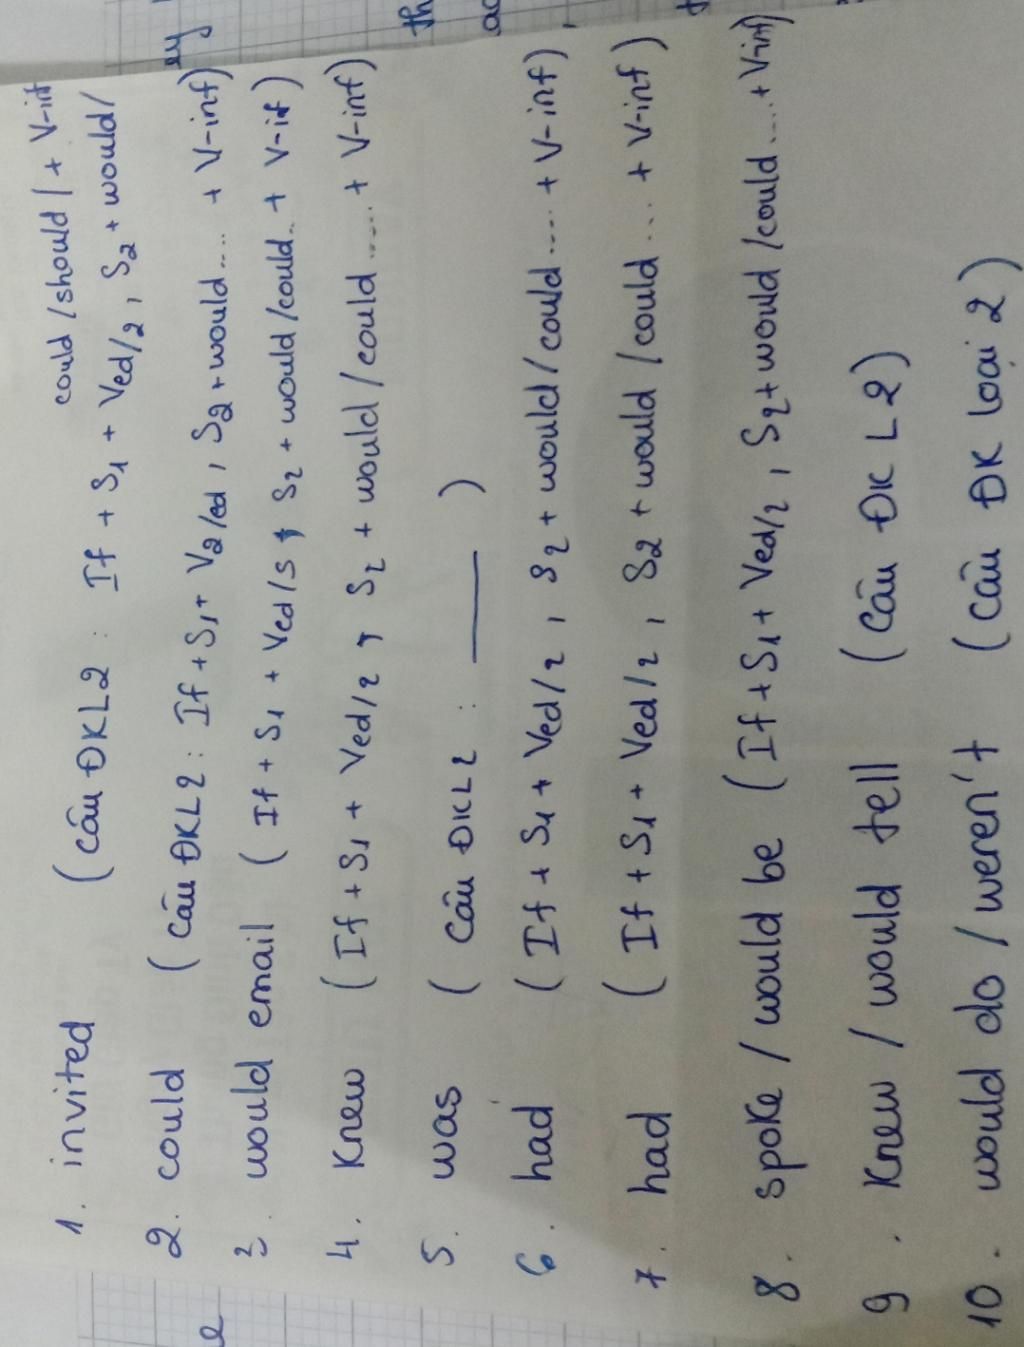 could /should / + V-inf
1. invited (câu ĐKL2 : If + S1 + Ved/2 , S2 + would/
2. could (câu ĐKL2 : If + S1 + V2/ed , S2 + would.... + V-inf)
3. would email ( If + S1 + Ved/s , S2 + would/could.. + V-if)
4. Knew ( If + S1 + Ved/2 , S2 + would / could ..... + V-inf)
5. was ( câu ĐKL2 : ——— )
6. had ( If + S1 + Ved/2 , S2 + would / could .... + V-inf)
7. had ( If + S1 + Ved/2 , S2 + would /could ... + V-inf)
8. spoke / would be ( If + S1 + Ved/2 , S2 + would /could .... + V-inf)
9. Knew / would tell ( câu ĐK L2 )
10. would do / weren't ( câu ĐK loại 2 )